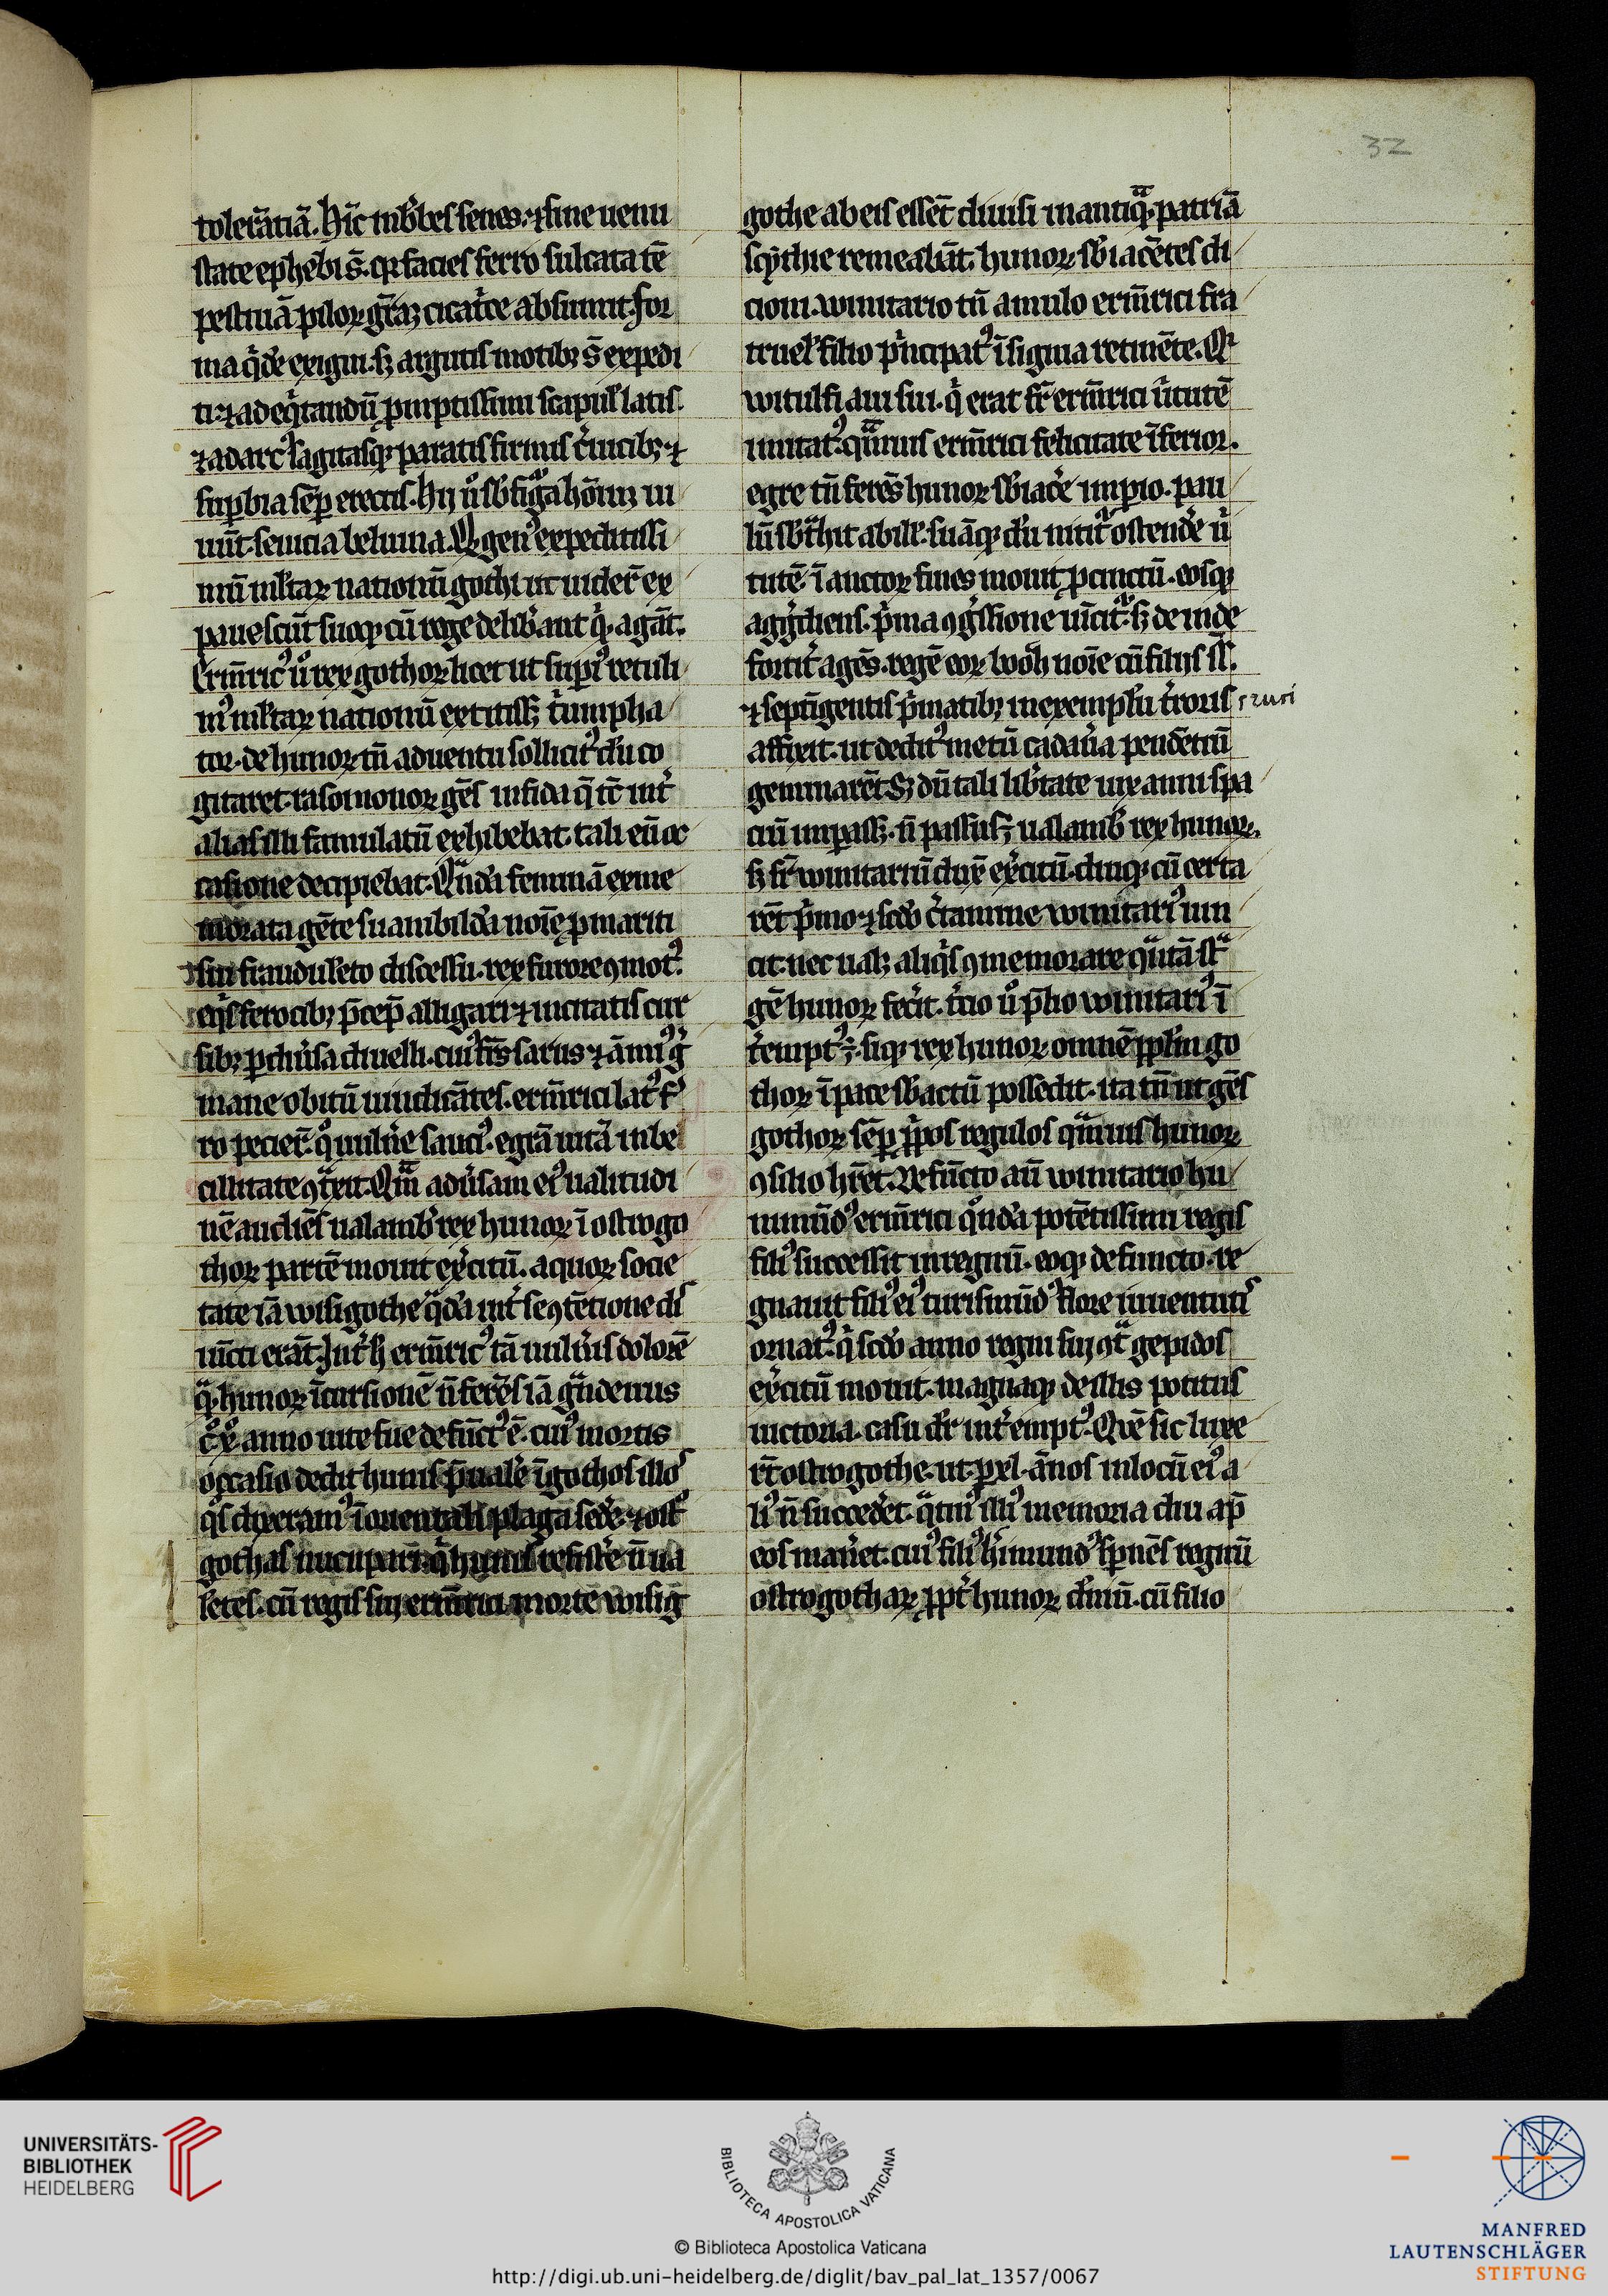 32
tolerātiā. Hīc inb̾bes senes. ⁊ sine uenu
state ephebi s̄. q̄ facies ferro sulcata tē
pestiuā piloꝝ grāꝫ cicat̾ce absumit. for
ma q̄dē exigui. sꝫ argutis motibꝫ s̄ expedi
ti. ⁊ ad eq̇tandū p̄mptissimi scapul̾ latis.
⁊ ad arcꝰ sagitasqꝫ paratis firmis c̾uicibꝫ ⁊
sup̄bia sēp erectis. Hij u̾o sb̾ figᵃa hōīuꝫ ui
uūt. seuicia beluina. Qꝫ genꝰ expeditissi
mū ml̾taꝝ nationū gothi ut uider̄t ex
pauescūt suoqꝫ cū rege delib̾ant q̇. agāt.
Erm̄ricꝰ u̾o rex gothoꝝ licet ut sup̾iꝰ retuli
mꝰ ml̾taꝝ nationū extitissꝫ t̾umpha
tor. de hunoꝝ tn̄ aduentu sollicitꝰ dū co
gitaret. rasomonoꝝ gēs infida q̄ tc̄ int̾
alias illi famulatū exhibebat. tali eū oc
casione decipiebat. Qᵃndā feminā ex me
morata gēte suanibildā noīe ꝓ mariti
sui fraudulēto discessu. rex furore ꝯmotꝰ.
eq̇s ferocibꝫ p̄cep̄ alligari ⁊ incitatis cur
sibꝫ p diu̾sa diuelli. cuiꝰ fr̄s sarus ⁊ āmiꝰ g̾
mane obitū uindicātes. erm̄rici latꝰ f̾
ro pecier̄t. q̊ uuln̾e sauciꝰ. egrā uitā inbe
cillitate ꝯtᵃxit. Qᵃm adu̾sam eiꝰ ualitudi
nē audiēs ualamb̾ rex hunoꝝ ī ostrogo
thoꝝ partē mouit ex̾citū. a quoꝝ socie
tate iā wisigothe q̄dā int̾ se ꝯtētione dis
iūcti erāt. Int̾ h̾ erm̄ricꝰ tā uuln̾is dolorē
qᵃ. hunoꝝ īcursionē n̄ ferēs iā gᵃndeuus
c̊. x̊. anno uite sue defūctꝰ ē. cuiꝰ mortis
occasio dedit hunis p̄ualē̾ ī gothos illos
q̊s dixeramꝰ ī orientali plaga sedē̾. ⁊ ost̊
gothas nūcupari. qᵃ hunis resistē̾ n̄ ua
lētes. cū regis sui erm̄rici mortē wisig̊
gothe ab eis essēt diuisi in antiqᵃ. patriā
scythie remeabāt. hunoꝝ sb̾iacētes di
cioni. winitario tn̄ amulo erm̄rici fra
truel̾ filio p̾ncipatꝰ īsignia retinēte. Qi
witulfi aui sui. q̇ erat fr̄ erm̄rici u̾tutē
imitatꝰ. qᵃmuis erm̄rici felicitate īferior.
egre tn̄ ferēs hunoꝝ sb̾iacē̾ imp̄io. pau
lū sb̾tᵃhit ab ill̾. suāqꝫ dū nitit̾ ostendē̾ u̾
tutē. ī anctoꝝ fines mouit p̄cinctū. eosqꝫ
agg̾diens. p̾ma ꝯg̾ssione uīcit̾. sꝫ de inde
fortit̾ agēs. regē eoꝝ boxh noīe cū filijs s̄.
⁊ septīgentis p̾matibꝫ in exemplū t̾roris cruci
affixit. ut dedit̾ metū cadau̾a pendētiū
geminarēt. Sꝫ dū tali lib̾tate uix anni spa
ciū imp̄assꝫ. n̄ passus ē ualamb̾ rex hunoꝝ.
sꝫ sr̄ winitariū duxꝫ ex̾citū. diuqꝫ cū certa
rēt p̾mo ⁊ scd̾o c̾tamine winitariꝰ uin
cit. nec ualꝫ aliq̇s ꝯmemorare qᵃntā stᵃ
gē hunoꝝ fec̾it. t̾cio u̾o p̄lio winitariꝰ ī
t̾emptꝰ ē. sicqꝫ rex hunoꝝ omnē pp̄lm go
thoꝝ ī pace sb̾actū possedit. ita tn̄ ut gēs
gothoꝝ sēp p̄p̾os regulos qᵃmuis hunoꝝ
ꝯsilio hr̄et. Defūcto aū winitario hu
nimūdꝰ erm̄rici q̊ndā potētissimi regis
filiꝰ successit in regnū. eoqꝫ defuncto. re
gnauit filiꝰ eiꝰ turismūdꝰ flore iuuentutis
ornatꝰ. q̇ scd̾o anno regni sui ꝯtᵃ gepidos
ex̾citū mouit. magnaqꝫ de illis potitus
uictoria. casu dr̄ int̾emptꝰ. Quē sic luxe
rt̄ ostrogothe. ut p xl. ānos in locū eiꝰ a
liꝰ n̄ succedet̾. qᵃtinꝰ illiꝰ memoria diu ap̄
eos man̾et. cuiꝰ filiꝰ b̾imundꝰ sp̄nēs regnū
ostrogothaꝝ p̄pt̾ hunoꝝ dn̄iū. cū filio
UNIVERSITÄTS-
BIBLIOTHEK
HEIDELBERG
BIBLIOTECA APOSTOLICA VATICANA
© Biblioteca Apostolica Vaticana
http://digi.ub.uni-heidelberg.de/diglit/bav_pal_lat_1357/0067
MANFRED
LAUTENSCHLÄGER
STIFTUNG